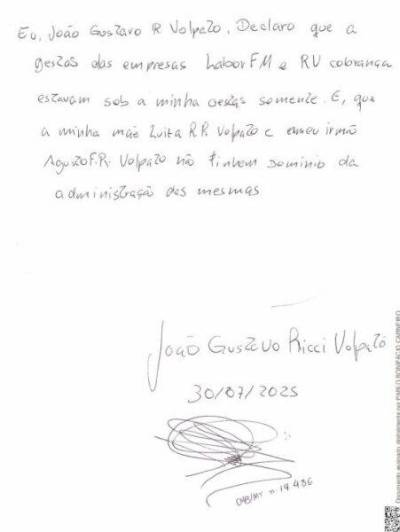 Eu, João Gustavo R Volpato, Declaro que a
gestão das empresas Labor FM e RV cobrança
estavam sob a minha gestão somente. E, que
a minha mãe Luiza R.R. Volpato e emeu irmão
Augusto F.Ri Volpato não tinham dominio da
administração das mesmas
João Gustavo Ricci Volpato
30/07/2025
OAB/MT n. 19.486
Documento assinado digitalmente por PABLO BONIFACIO CARNEIRO